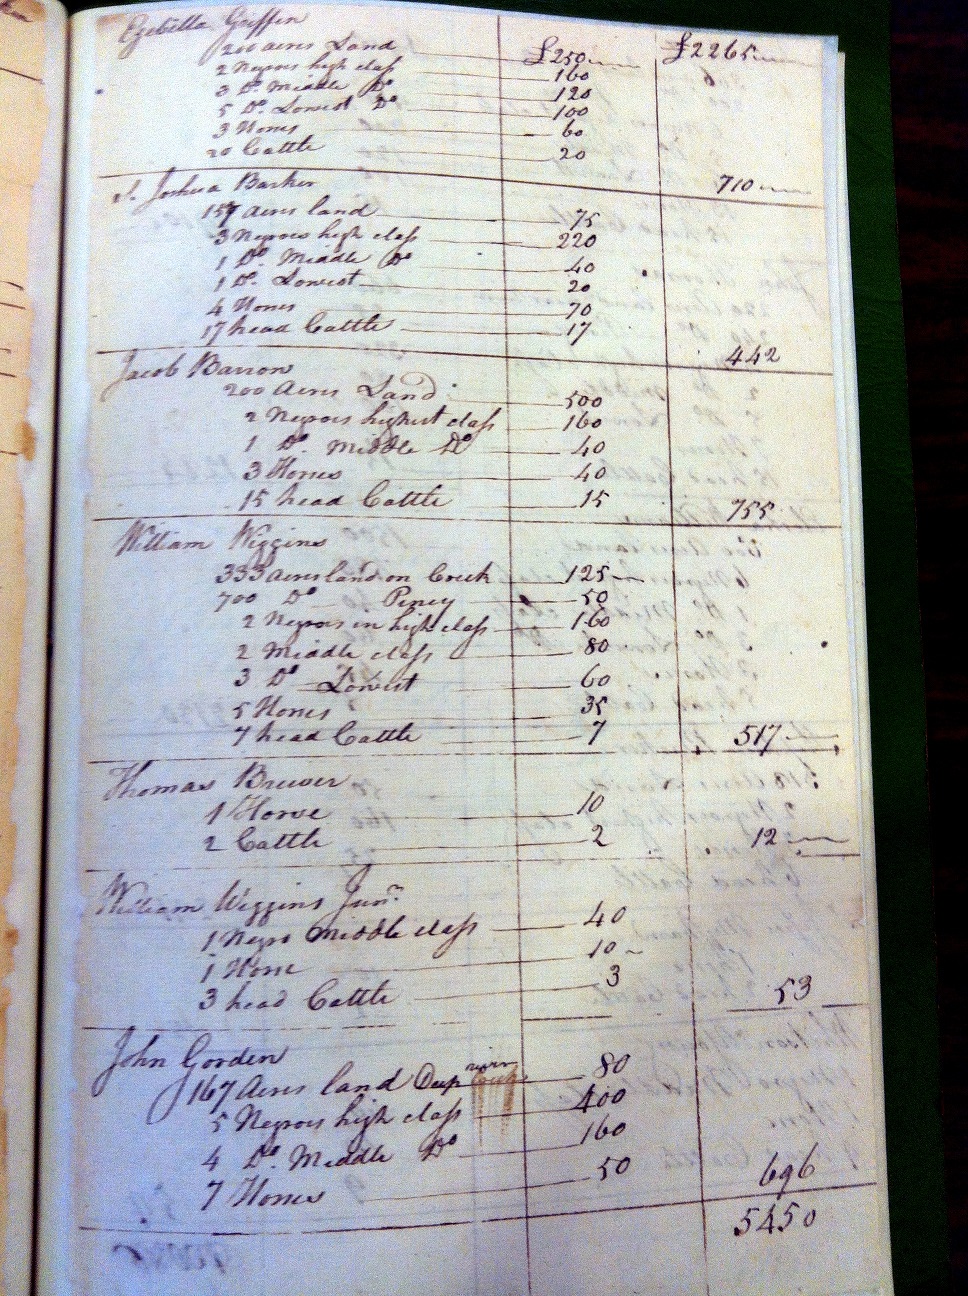 Ezebella Griffin
£2265
200 acres Land £250
2 Negroes high class 160
3 Do. Middle Do 120
5 Do. Lowest Do 100
3 Horses 60
20 Cattle 20
710
Joshua Barker
157 acres land 75
3 Negroes high class 220
1 Do. Middle Do 40
1 Do. Lowest 20
4 Horses 70
17 head Cattle 17
442
Jacob Barron
200 Acres Land 500
2 Negroes highest class 160
1 Do. Middle Do 40
3 Horses 40
15 head Cattle 15
755
William Wiggins
333 acres land on Creek 125
700 Do Piney 50
2 Negroes in high class 160
2 Middle class 80
3 Do Lowest 60
5 Horses 35
7 head Cattle 7
517
Thomas Brewer
1 Horse 10
2 Cattle 2
12
William Wiggins Junr.
1 Negro Middle class 40
1 Horse 10
3 head Cattle 3
53
John Gorden
167 Acres land Deep river 80
5 Negroes high class 400
4 Do. Middle Do 160
7 Horses 50
696
5450